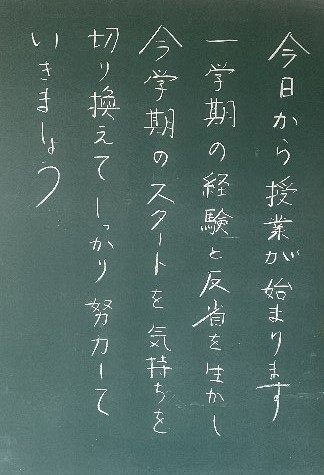 今日から授業が始まります
一学期の経験と反省を生かし
今学期のスタートを気持ちを
切り換えてしっかり努力して
いきましょう